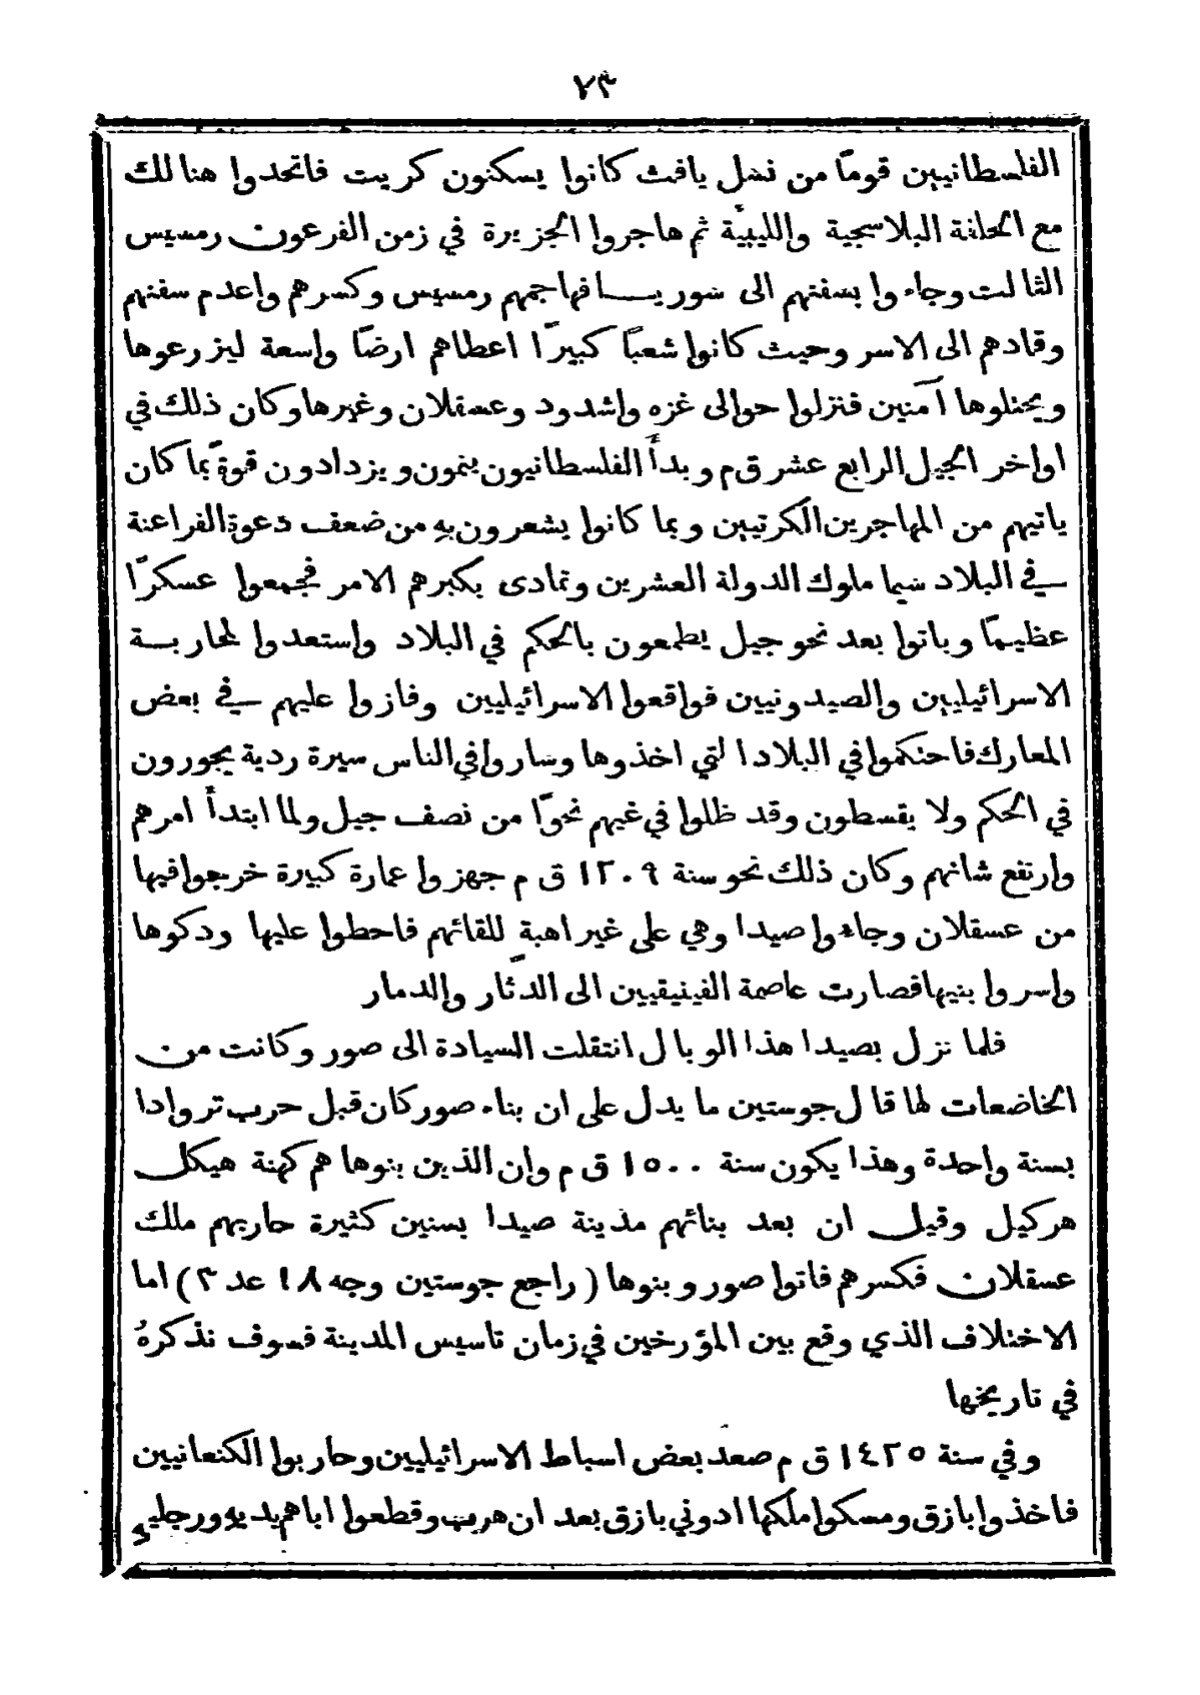 ٢٣
الفلسطانيين قومًا من نسل يافث كانوا يسكنون كريت فاتحدوا هنالك
مع الحلفة البلاسجية والليبيَّة ثم هاجروا الجزيرة في زمن الفرعون رمسيس
الثالث وجاءوا بسفنهم الى سوريا فهاجمهم رمسيس وكسرهم واعدم سفنهم
وقادهم الى الاسر وحيث كانوا شعبًا كبيرًا اعطاهم ارضًا واسعة ليزرعوها
ويحتلوها آمنين فنزلوا حوالى غزه واشدود وعسقلان وغيرها وكان ذلك في
اواخر الجيل الرابع عشر ق م وبدأ الفلسطانيون ينمون ويزدادون قوةً بما كان
ياتيهم من المهاجرين الكرتيين وبما كانوا يشعرون به من ضعف دعوة الفراعنة
في البلاد سيما ملوك الدولة العشرين وتمادى بكبرهم الامر فجمعوا عسكرًا
عظيمًا وباتوا بعد نحو جيل يطمعون بالحكم في البلاد واستعدوا لمحاربة
الاسرائيليين والصيدونيين فواقعوا الاسرائيليين وفازوا عليهم في بعض
المعارك فاحتكموا في البلاد التي اخذوها وساروا في الناس سيرة ردية يجورون
في الحكم ولا يقسطون وقد ظلوا في غيهم نحوًا من نصف جيل ولما ابتدأ امرهم
وارتفع شانهم وكان ذلك نحو سنة ١٢٠٩ ق م جهزوا عمارة كبيرة خرجوا فيها
من عسقلان وجاءوا صيدا وهي على غير اهبة للقائهم فاحطوا عليها ودكوها
واسروا بنيها فصارت عاصمة الفينيقيين الى الدثار والدمار
فلما نزل بصيدا هذا الوبال انتقلت السيادة الى صور وكانت من
الخاضعات لها قال جوستين ما يدل على ان بناء صور كان قبل حرب تروادا
بسنة واحدة وهذا يكون سنة ١٥٠٠ ق م وان الذين بنوها هم كهنة هيكل
هركيل وقيل ان بعد بنائهم مدينة صيدا بسنين كثيرة حاربهم ملك
عسقلان فكسرهم فاتوا صور وبنوها (راجع جوستين وجه ١٨ عد ٣) اما
الاختلاف الذي وقع بين المؤرخين في زمان تاسيس المدينة فسوف نذكرهُ
في تاريخها
وفي سنة ١٤٢٥ ق م صعد بعض اسباط الاسرائيليين وحاربوا الكنعانيين
فاخذوا بازق ومسكوا ملكها ادوني بازق بعد ان هرب وقطعوا اباهم يديه ورجليه